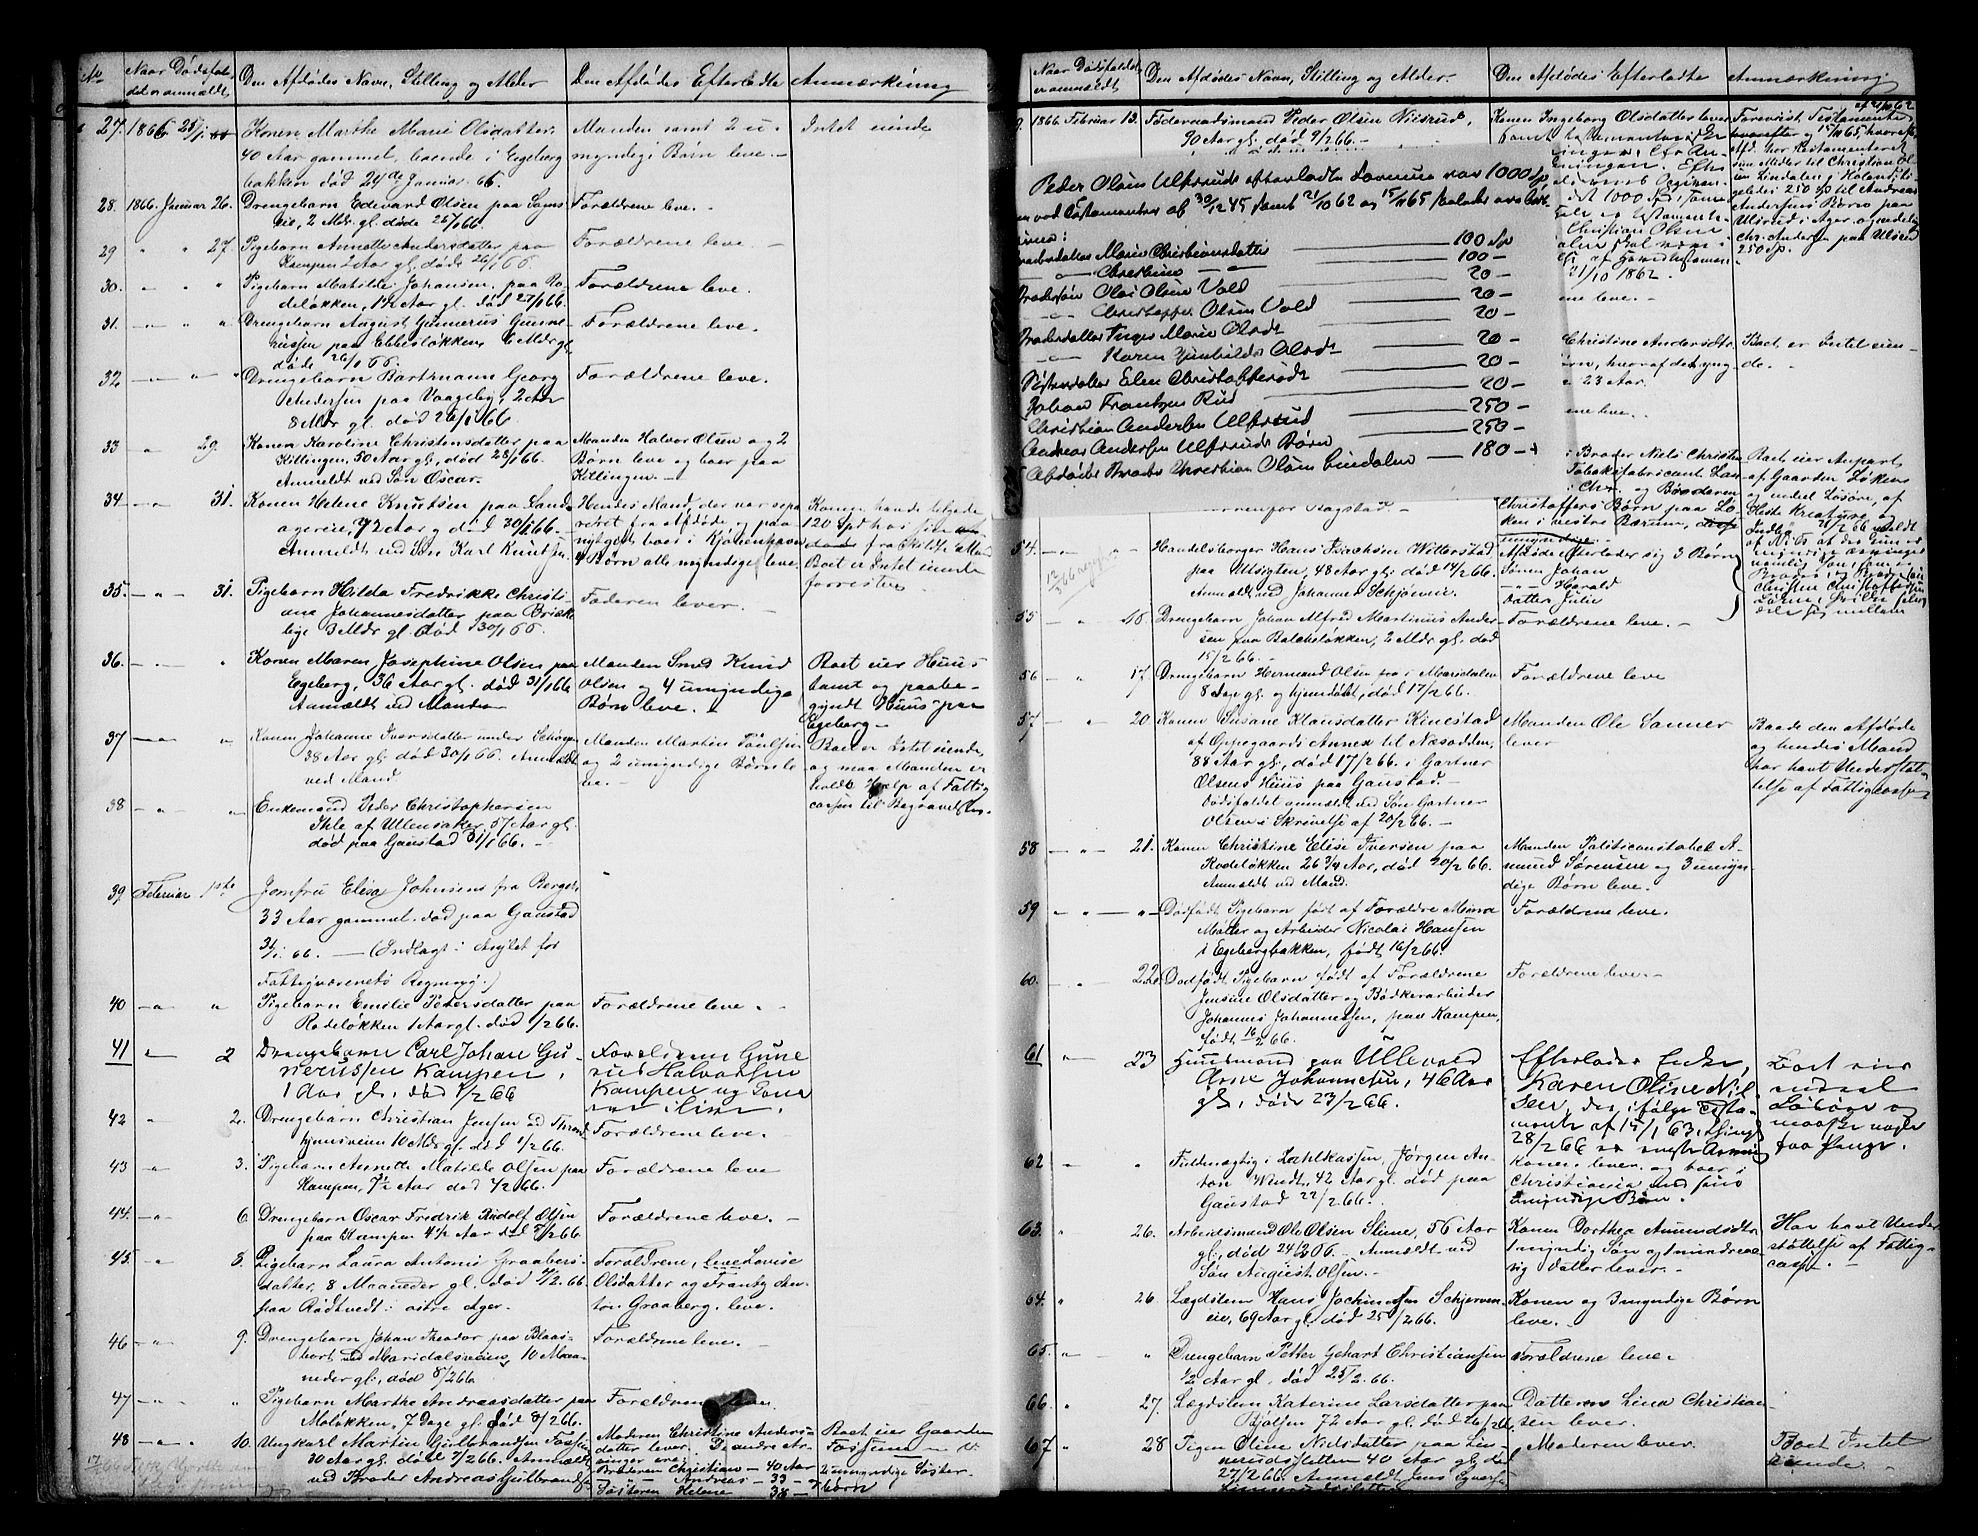 No
Naar Dødsfal-
det er anmeldt
Den Afdødes Navn, Stilling og Alder
Den Afdødes Efterladte
Anmærkning
27. 1866 25/1
Konen Marthe Marie Olsdatter,
40 Aar gammel, boende i Egeberg
bakken død 24de Januar 66.
Manden samt 2 u-
myndige Børn leve.-
Intet eiende
28. 1866 Januar 26.
Drengebarn Edevard Olsen paa
2 Mdr. gl. døde 25/1 66.
Forældrene leve. -
29 " " 27.
Pigebarn Annette Andersdatter paa
Kampen 2 Aar gl. døde 26/1 66.
Forældrene leve. -
30. - " "
Pigebarn Mathilde Johansen, paa Ro-
deløkken, 1½ Aar gl. død 27/1 66.
Forældrene leve.
31. - " "
Drengebarn August Gunnerus Gunne-
russen paa Ebbesløkken 6 Mdr gl.
døde 26/1 66.
Forældrene leve.
32 - " "
Drengebarn Bartmann Georg
Andersen paa Vaagebye, 2 Aar
8 Mdr gl. død 26/1 66.
Forældrene leve.
33 " 29.
Konen Karoline Christensdatter paa
Killingen, 50 Aar gl., død 28/1 66.
Anmeldt ved Søn Oscar.
Manden Halvor Olsen og 2
Børn leve og boer paa
Killingen.-
34. - " 31.
Konen Helene Knutsen paa Sand-
72 Aar g død 30/1 66.
Anmeldt ved Søn Karl Knutsen
Hendes Mand, der var sepa
reret fra Afdøde, og paa
boer i Kjøbenhavn
4 Børn alle myndige leve.
120 Spd hos sin
fra Skilte Mand
Boet er Intet
35. - " - 31.
Pigebarn Hilda Fredrikke Christi-
ane Johannesdatter paa Briske-
bye 3 Mdr gl. død 30/1 66.
Faderen lever. -
36. - " - "
Konen Maren Josephine Olsen paa
Egeberg, 36 Aar gl. død 31/1 66
Anmeldt ved Manden
Manden Smed Knud
Olsen og 4 umyndige
Børn leve. -
Boet eier Huus-
tomt og paabe-
gyndt Huus paa
Egeberg-
37 - " - "
Konen Johanne Ivarsdatter under
38 Aar gl. død 30/1 66. Anmeldt
ved Mand.
Manden Martin Poulsen
og 2 umyndige Børn le
ve. -
Boet er Intet eiende,
og maa Manden er-
holde Hjelp af Fattig
cassen til Begravelsen.
38 - " "
Enkemand Peder Christophersen
Ihle af Ullensaker, 57 Aar gl.
død paa Gaustad 31/1 66. -
39 Februar 1ste
Jomfru Elisa Johnsens fra Bergen
33 Aar gammel. død paa Gaustad
31/1. 66. — (Indlagt i Asylet for
Fattigvæsenets Regning.)
40 - " "
Pigebarn Emilie Petersdatter paa
Rodeløkken 1 Aar gl. død 1/2 66.
Forældrene leve.
41 - 2
Drengebarn Carl Johan Gu-
nerussen Kampen,
1 Aar gl., død 1/2 66
Forældrene Gune
rus Halvorsen
Kampen og Kone
ere i live.
42 " 2.
Drengebarn Christian Jensen ved Thrond
hjemsveien 10 Mdr gl. død 1/2 66.
Forældrene leve. -
43 " 3.
Pigebarn Annette Matilde Olsen paa
Kampen, 7½ Aar død 1/2 66.
Forældrene leve
44. - " 6
Drengebarn Oscar Fredrik Rudolf Olsen
paa Kampen 4½ Aar død 5/2 66.
Forældrene leve. -
45. " 8.
Pigebarn Laura Antonie Graabergs-
datter, 8 Maaneder gl. død 7/2 66.
paa Rødtvedt i østre Ager.
Forældrene, Lovise
Olsdatter og Frantz An-
ton Graaberg leve.
46 - " 9.
Drengebarn Johan Theodor paa Blaas-
bort ved Maridalsveien 10 Maa-
neder gl., død 8/2 66.
Forældrene leve. -
47 - " "
Pigebarn Marthe Andreasdatter paa
Moløkken, 7 Dage gl. død 8/2 66.
Forældrene leve.
48 - " 10.
Ungkarl Martin Gulbrandsen Fossum
30 Aar gl. død 7/2 66. Anmeldt
ved Broder Andreas Gulbrandsen
Moderen Christine Anders-
datter lever. De andre Ar-
vinger ere:
Broderen Christian - 40 Aar
" Andreas - 33 -
Søsteren Helene - 38 -
Boet eier Gaarden
Fossum
2 umyndige Søster-
børn
Naar Dødsfaldet
er anmeldt
Den Afdødes Navn, Stilling og Alder.
Den Afdødes Efterladte
Anmærkning.
1866. Februar 13.
Føderaadsmand Peder Olsen
90 Aar gl. død 9/2 66. -
Konen Ingeborg Olsdatter lever
Forevist Testamente
af 21/10 62
og 15/11 65, hvorefter
Afd. har testamenteret
sine Midler til Christian Ol-
sen Lindalen i Høland, li-
geledes 250 Sp til Andreas
Andersens Børn paa
Ulsrud i Ager, og endelig
Chr. Andersen paa Ulsrud
250 Sp.
1000 Spd, som
Testamente
Christian Olsen
21/10 1862.
ene leve. -
Peder Olsen Ulfsruds efterladte Formue var 1000 Sp,
som ved Testamenter af 30/12 45 samt 21/10 62 og 15/11 65
Broderdatter Marie Christiansdatter — 100 Sp
— " — Christine — " — 100 -
Brodersøn Ole Olsen Vold — 20 -
— " — Christopher Olsen Vold — 20 -
Broderdatter Inger Marie Olsdr — 20 -
— " — Karen Gunhilde Olsdr — 20 -
Søsterdatter Elen Christophersdr — 20 -
Johan Frantzen Rud — 20 -
Christian Andersen Ulfsrud — 250 -
Andreas Andersen Ulfsruds Børn — 250 -
Afdødes Broder Christian Olsen Lindalen — 180 -
Christine Andersdtr
hvoraf det yng
23 Aar.
Boet er Intet eien-
de. -
ene leve. -
Broder Niels Christen
Tobaksfabricant
og Broderen
Christoffers Børn paa Lø-
ken i vestre Bærum,
umyndige.
Boet eier Anpart
af Gaarden Løken
og endel Løsøre, af
Heste Kreature og
54. - " "
Handelsborger Hans Isachsen Witterstad
paa Ulsigten, 48 Aar gl. død 14/2 66.
Anmeldt ved Johannes Schjønne.
Afdøde efterlader sig 3 Børn
Sønen Johan
— " — Harald
Datter Julie
55 - " 16.
Drengebarn Johan Alfred Martinius Ander-
sen paa Balcheløkken, 2 Mdr gl. død
15/2 66. -
Forældrene leve. -
56 - " 17.
Drengebarn Herman Olsen fra i Maridalen
8 Dage gl. og hjemdøbt, død 17/2 66.
Forældrene leve
57. - " 20
Konen Susane Klausdatter Kinestad
af Oppegaards Annex til Næsodden,
88 Aar gl., død 17/2 66. i Gartner
Olsens Huus paa Gaustad. -
Dødsfaldet anmeldt ved Søn Gartner
Olsen i Skrivelse af 20/2 66. -
Manden Ole Sanner
lever
Baade den Afdøde
og hendes Mand
har havt Understøt-
telse af Fattigcassen
58 - " - 21.
Konen Christine Elise Iversen paa
Rodeløkken 26 3/4 Aar, død 20/2 66.
Anmeldt ved Mand.
Manden Politiconstabel A-
mund Sørensen og 3 umyn-
dige Børn leve. -
59 - " - " -
Dødfødt Pigebarn født af Forældre Mina
Møller og Arbeider Nicolai Hansen
i Egebergbakken, født 16/2 66.
Forældrene leve.
60. - 22
Dødfødt Pigebarn født af Forældrene
Jensine Olsdatter og Bødkerarbeider
Johannes Johannessen, paa Kampen,
født 16/2 66.
Forældrene leve. -
61 " 23
Huusmand paa Ullevold
Arne Johannesen, 46 Aar
gl., døde 23/2 66.
Efterlader Enke,
Karen Oline Nil
sen, der ifølge Testa-
mente af 15/1 63,
28/2 66 er eneste Arving
Boet eier
endeel
Løsøre og
maaske nogle
faa Penge.
62 - "
Fuldmægtig i Zahlkassen, Jørgen An-
ton Windt, 42 Aar gl. død paa
Gaustad 22/2 66.
Konen lever og boer i
Christiania med sine
umyndige Børn.
63. " 26.
Arbeidsmand Ole Olsen Slime, 56 Aar
gl., død 24/2 66. - Anmeldt ved
Søn August Olsen. -
Konen Dorthea Amundsdtr
1 myndig Søn og 1 mindreaa
rig Datter lever. -
Har havt Under
støttelse af Fattig-
casse. -
64. " 26.
Lægdslem Hans Jochimsen Schjerven-
eie, 69 Aar gl. død 25/2 66.
Konen og 3 myndige Børn
leve.
65. " "
Drengebarn Petter Gehart Christiansen
½ Aar gl. død 25/2. 66.
Forældrene leve
66. " 27.
Lægdslem Katerine Larsdatter paa
Bjølsen 72 Aar gl. død 26/2 66.
Datteren Lina Christian-
sen lever.
67 " 28
Pigen Oline Nielsdatter paa Lin-
nerudsletten 40 Aar gl. død
27/2 66. Anmeldt
Moderen lever.
Boet Intet
eiende